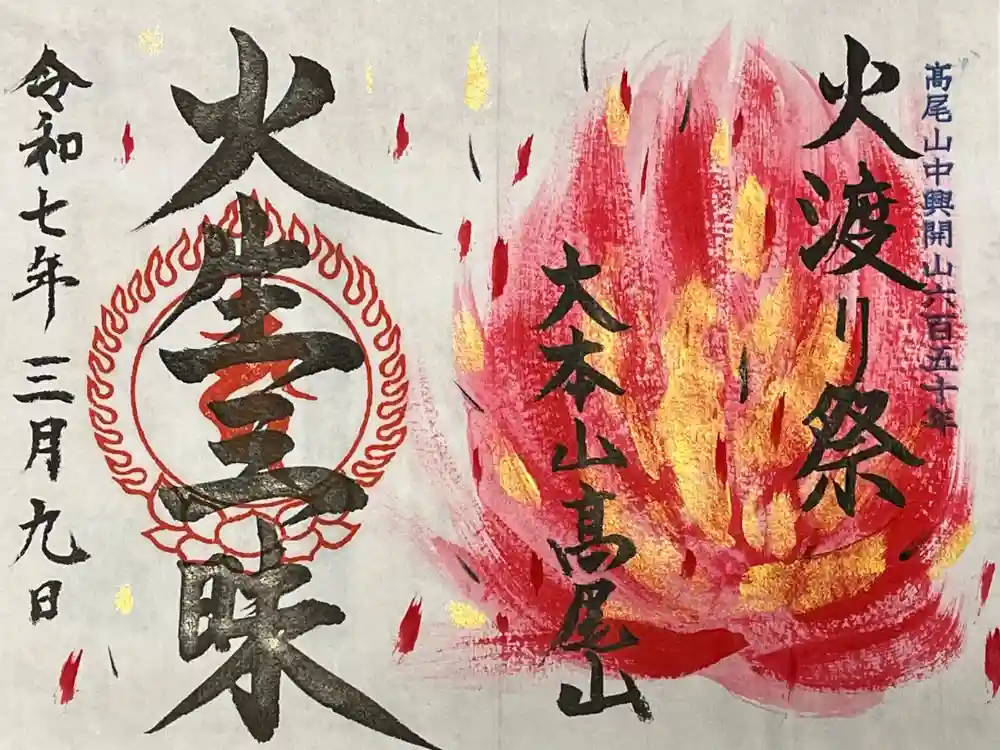 高尾山中興開山六百五十年
火渡り祭
大本山高尾山
火生三昧
令和七年三月九日